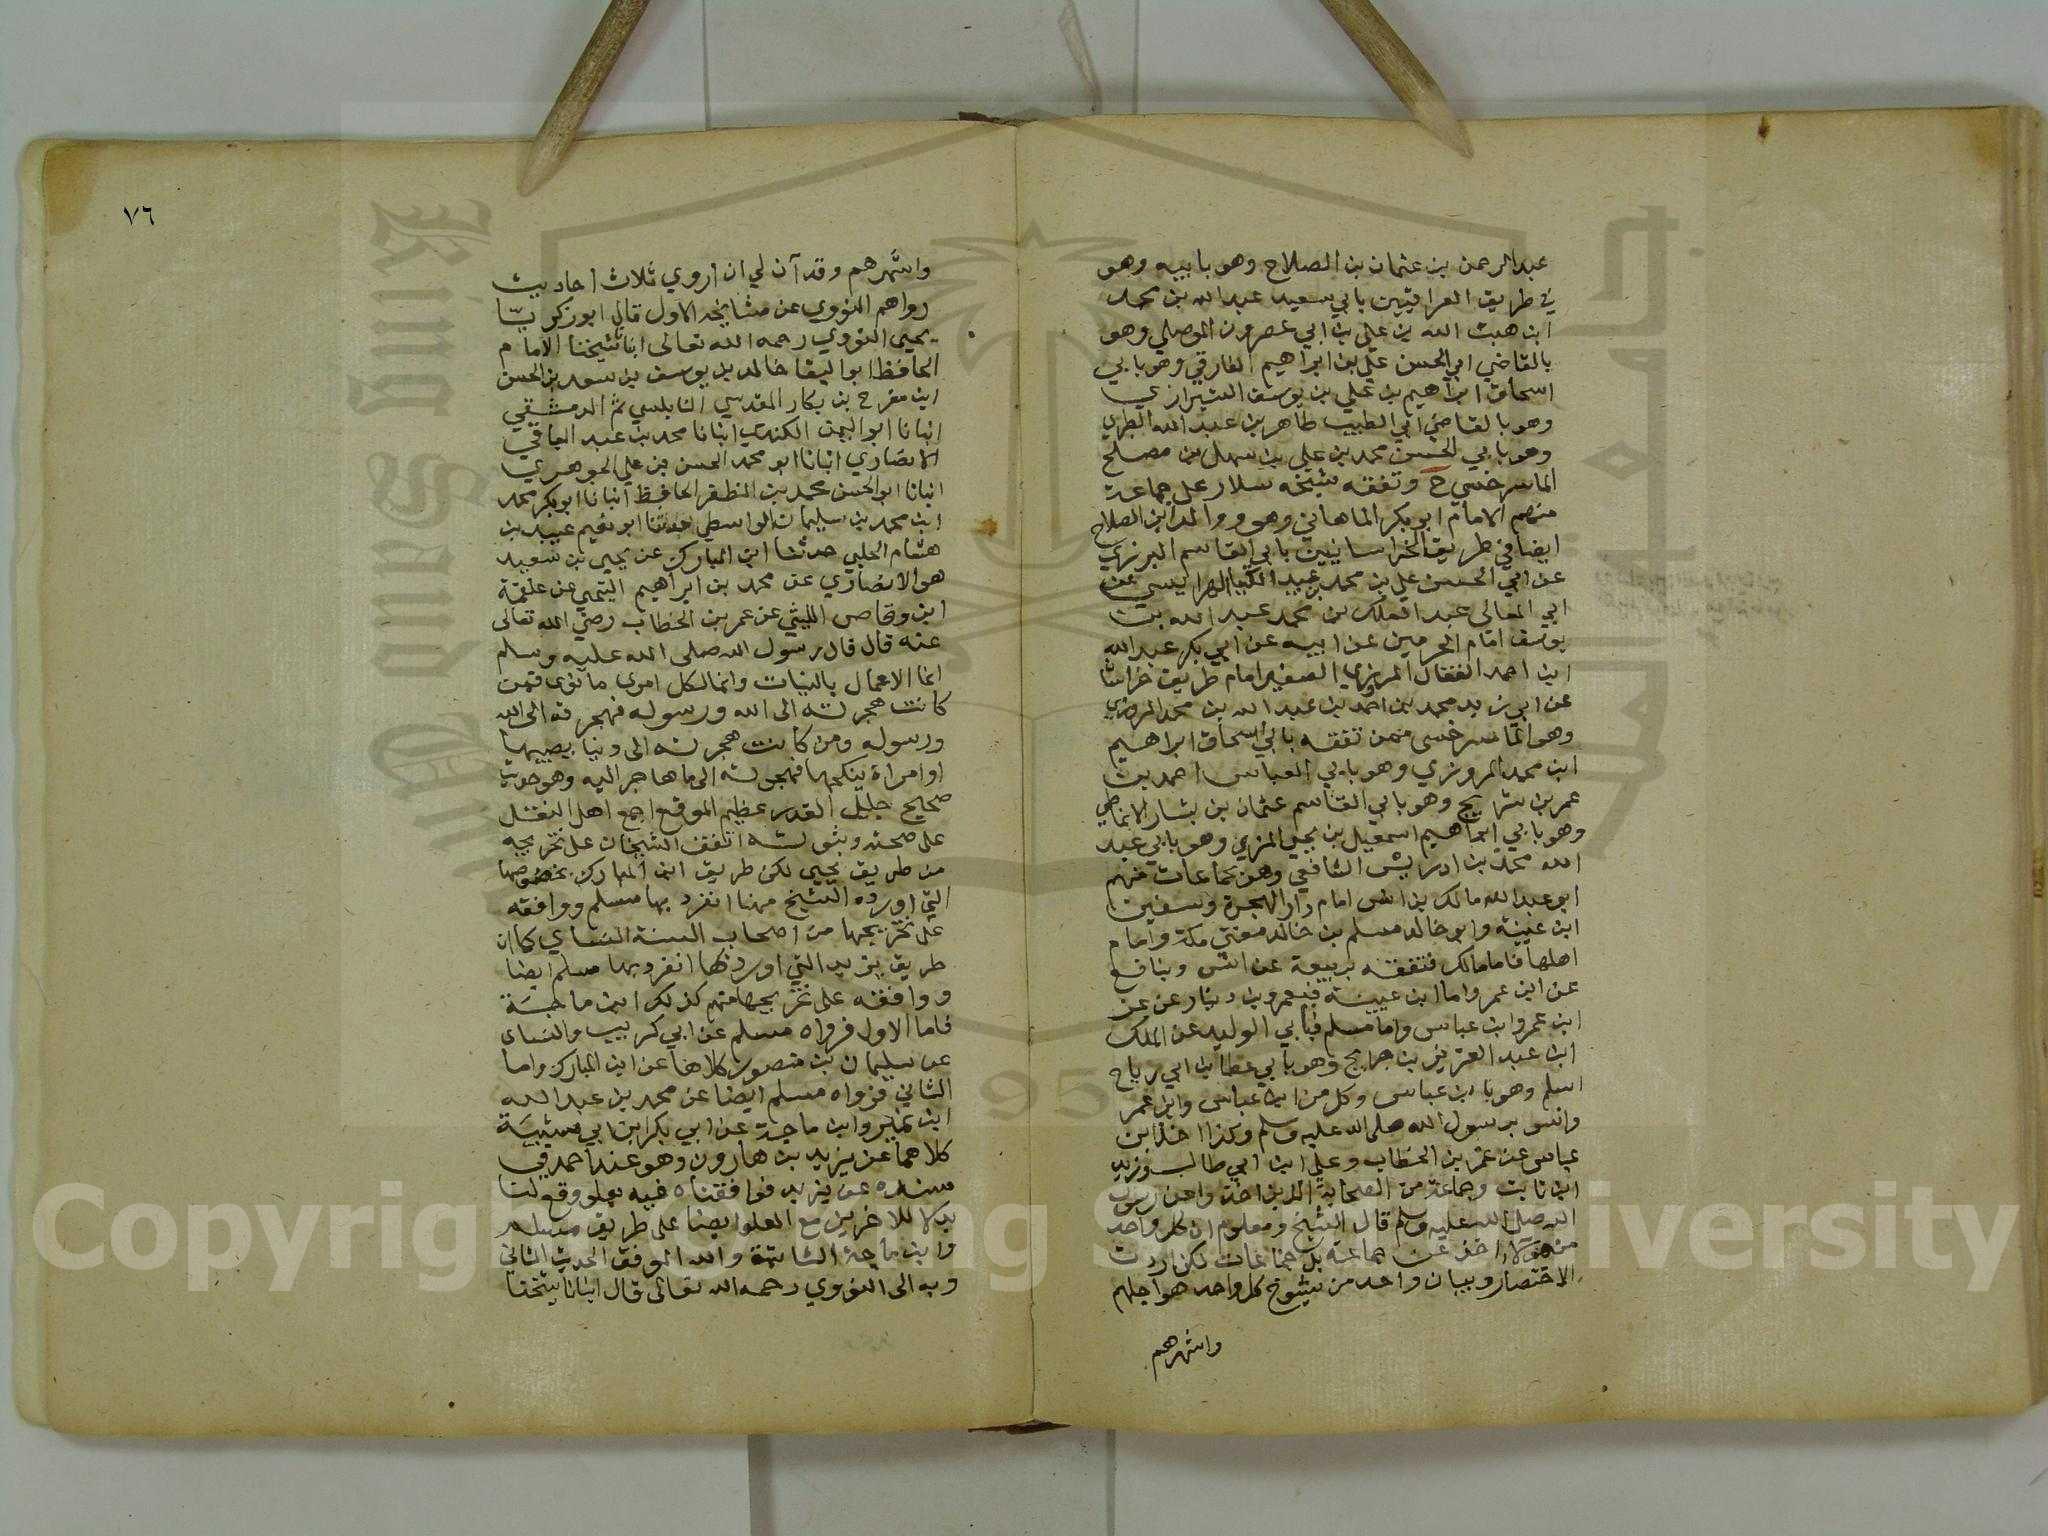 عبد الرحمن بن عثمان بن الصلاح وهو بابيه وهو
في طريق العراقيين بابي سعيد عبد الله بن محمد
ابن هبت الله بن علي بن ابي عصرون الموصلي وهو
بالقاضي ابي الحسن علي بن ابراهيم الفارقي وهو بابي
اسحاق ابراهيم بن علي بن يوسف الشيرازي
وهو بالقاضي ابي الطيب طاهر بن عبد الله الطبري
وهو بابي الحسن محمد بن علي بن سهل بن مصلح
الماسرخسي ح وتفقه شيخه سلار على جماعة
منهم الامام ابو بكر الماهاني وهو ووالد ابن الصلاح
ايضا في طريق الخراسانيين بابي القاسم البرزي
عن ابي الحسن علي بن محمد بن عبد الكيا الهراسي عن
ابي المعالي عبد الملك بن محمد عبد الله بن
يوسف امام الحرمين عن ابيه عن ابي بكر عبد الله
ابن احمد القفال المروزي الصغير امام طريق خراسان
عن ابي زيد محمد بن احمد بن عبد الله بن محمد المروزي
وهو الماسرخسي ممن تفقه بابي اسحاق ابراهيم
ابن محمد المروزي وهو بابي العباس احمد بن
عمر بن شريج وهو بابي القاسم عثمان بن بشار الانماطي
وهو بابي ابراهيم اسمعيل بن يحيى المزني وهو بابي عبد
الله محمد بن ادريس الشافعي وهو بجماعات منهم
ابو عبد الله مالك بن انس امام دار الهجرة وسفين
ابن عيينة وابو خالد مسلم بن خالد مفتي مكة وامام
اهلها فاما مالك فتفقه بربيعة عن انس وبنافع
عن ابن عمر واما ابن عيينة فبعمرو بن دينار عن عن
ابن عمر وابن عباس واما مسلم فبابي الوليد عن الملك
ابن عبد العزيز بن جريج وهو بابي عطا بن ابي رباح
اسلم وهو بابن عباس وكل من ابن عباس وابن عمر
وانس برسول الله صلى الله عليه وسلم وكذا اخذ ابن
عباس عن عمر بن الخطاب وعلي ابن ابي طالب وزيد
ابن ثابت وجماعة من الصحابة الذين اخذوا عن رسول
الله صلى الله عليه وسلم قال الشيخ ومعلوم ان كل واحد
من هولاء اخذ عن جماعة بل جماعات لكن اردت
الاختصار وبيان واحد من شيوخ كل واحد هو اجلهم
واشهرهم
٧٦
واشهرهم وقد آن لي ان اروي ثلاث احاديث
رواهم النووي عن مشايخه الاول قال ابو زكريا
يحيى النووي رحمه الله تعالى انبا شيخنا الامام
الحافظ ابو البقا خالد بن يوسف بن سعد بن الحسن
ابن مفرح بن بكار المقدسي النابلسي ثم الدمشقي
انبانا ابو اليمن الكندي انبانا محمد بن عبد الباقي
الانصاري انبانا ابو محمد الحسن بن علي الجوهري
انبانا ابو الحسن محمد بن المظفر الحافظ انبانا ابو بكر محمد
ابن محمد بن سليمان الواسطي حدثنا ابو نعيم عبيد بن
هشام الحلبي حدثنا ابن المبارك عن يحيى بن سعيد
هو الانصاري عن محمد بن ابراهيم التيمي عن علقمة
ابن وقاص الليثي عن عمر بن الخطاب رضي الله تعالى
عنه قال قال رسول الله صلى الله عليه وسلم
انما الاعمال بالنيات وانما لكل امرئ ما نوى فمن
كانت هجرته الى الله ورسوله فهجرته الى الله
ورسوله ومن كانت هجرته الى دنيا يصيبها
او امراة ينكحها فهجرته الى ما هاجر اليه وهو حديث
صحيح جليل القدر عظيم الموقع اجمع اهل النقل
على صحته وثبوته اتفق الشيخان على تخريجه
من طريق يحيى لكن طريق ابن المبارك بخصوصها
التي اورده الشيخ منها انفرد بها مسلم ووافقه
على تخريجها من اصحاب السنة النساي كما ان
طريق يزيد التي اوردتها انفرد بها مسلم ايضا
ووافقه على تخريجها منهم كذلك ابن ماجة
فاما الاول فرواه مسلم عن ابي كريب والنساى
عن سليمان بن منصور كلاهما عن ابن المبارك واما
الثاني فرواه مسلم ايضا عن محمد بن عبد الله
ابن نمير وابن ماجة عن ابي بكر ابن ابي شيبة
كلاهما عن يزيد بن هارون وهو عند احمد في
مسنده عن يزيد فوافقناه فيه بعلو وقع لنا
بدلا للاخرين مع العلو ايضا على طريق مسلم
وابن ماجة الثانية والله الموفق الحديث الثاني
وبه الى النووي رحمه الله تعالى قال انبانا شيخنا